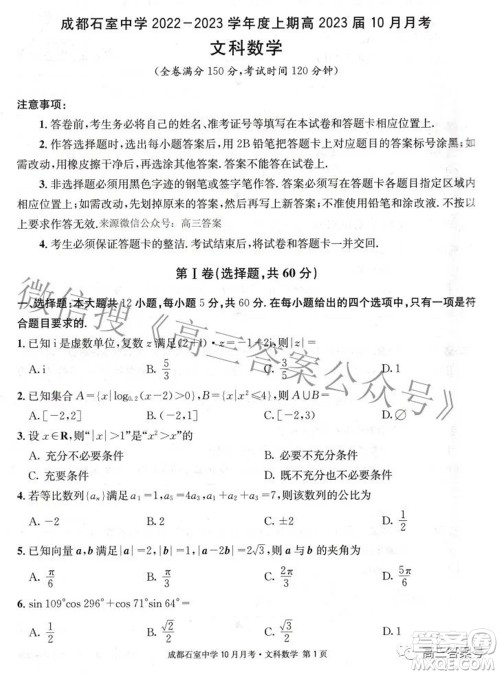 成都石室中学2022-2023学年度上期高2023届10月月考
文科数学
(全卷满分150分,考试时间120分钟)
注意事项:
1.答卷前,考生务必将自己的姓名、准考证号等填写在本试卷和答题卡相应位置上.
2.作答选择题时,选出每小题答案后,用2B铅笔把答题卡上对应题目的答案标号涂黑;如
需改动,用橡皮擦干净后,再选涂其他答案.答案不能答在试卷上.
3.非选择题必须用黑色字迹的钢笔或签字笔作答.答案必须写在答题卡各题目指定区域内
相应位置上;如需改动,先划掉原来的答案,然后再写上新答案;不准使用铅笔和涂改液.不按以
上要求作答无效.来源微信公众号:高三答案
4.考生必须保证答题卡的整洁.考试结束后,将试卷和答题卡一并交回.
第Ⅰ卷(选择题,共60分)
一、选择题:本大题共12小题,每小题5分,共60分.在每小题给出的四个选项中,只有一项是符
合题目要求的.
1.已知i是虚数单位,复数z满足(2-i)·z=
A.i B. C. D.1
2.已知集合A={x|log0.2(x-2)>0},B={x|x²≤4},则A∪B=
A.[-2,2] B.[-2,3) C.[-2,3] D.∅
3.设x∈R,则“|x|>1”是“x²>x”的
A.充分不必要条件 B.必要不充分条件
C.充要条件 D.既不充分也不必要条件
4.若等比数列{aₙ}满足a₁=1,a₅=4a₃,a₄+a₅=24,则该数列的公比为
A.-2 B.2 C.±2 D.1/2
5.已知向量a,b满足|a|=2,|b|=1,|a-b|=2√3,则a与b的夹角为
A.π/6 B.π/3 C.2π/3 D.5π/6
6.sin 109°cos 296°+cos 71°sin 64°=
A.1/2 B.√2/2 C.√3/2 D.1
成都石室中学10月月考·文科数学 第1页
微信搜《高三答案公众号》
高三答案号